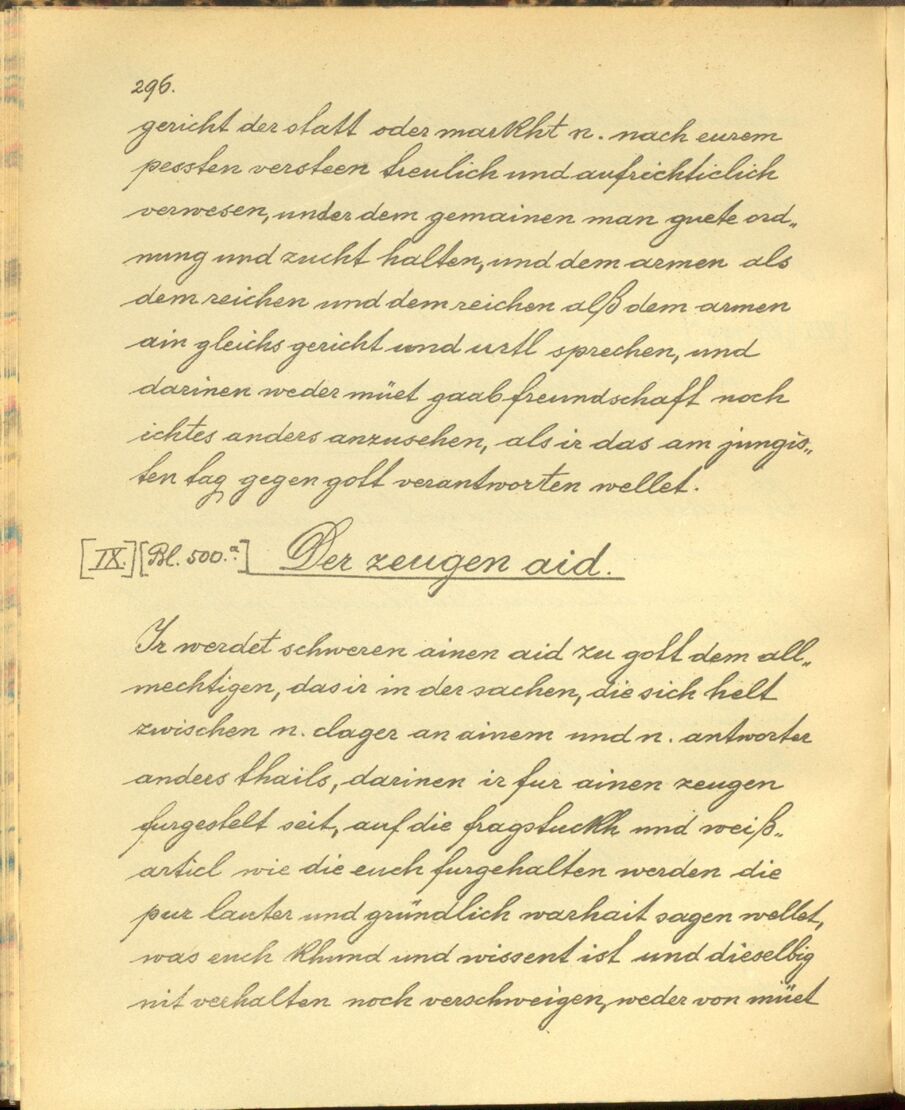 296.
gericht der statt oder markht n. nach eurem
pessten versteen treulich und aufrichticlich
verwesen, under dem gemainen man guete ord„
nung und zucht halten, und dem armen als
dem reichen und dem reichen alß dem armen
ain gleichs gericht und urtl sprechen, und
darinen weder müet gaab freundschaft noch
ichtes anders anzusehen, als ir das am jungis„
ten tag gegen gott verantworten wellet.
[IX.][Bl. 500.a.] Der zeugen aid.
Ir werdet schweren ainen aid zu gott dem all„
mechtigen, das ir in der sachen, die sich helt
zwischen n. clager an ainem und n. antworter
anders thails, darinen ir fur ainen zeugen
furgestelt seit, auf die fragstuckh und weiß„
articl wie die euch furgehalten werden die
pur lauter und gründlich warhait sagen wellet,
was euch khund und wissent ist und dieselbig
nit verhalten noch verschweigen, weder von müet